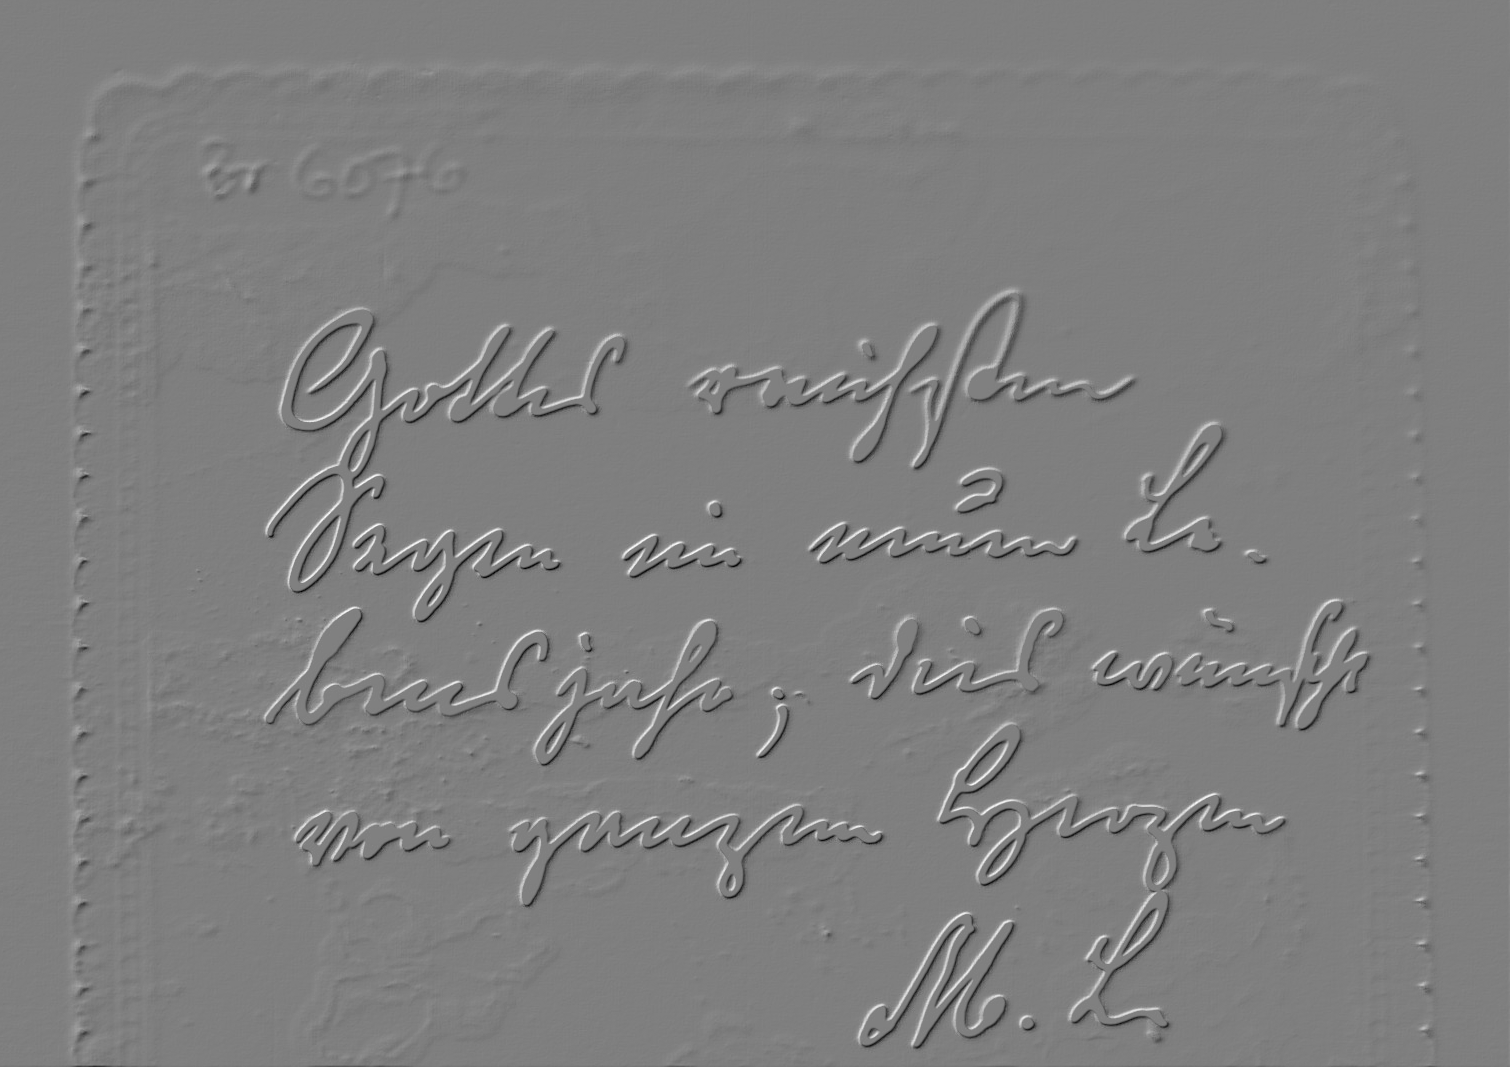 Br 6076
Gottes reichsten
Segen im neuen Le.
bensjahr; dies wünscht
von ganzem Herzen
M. L.